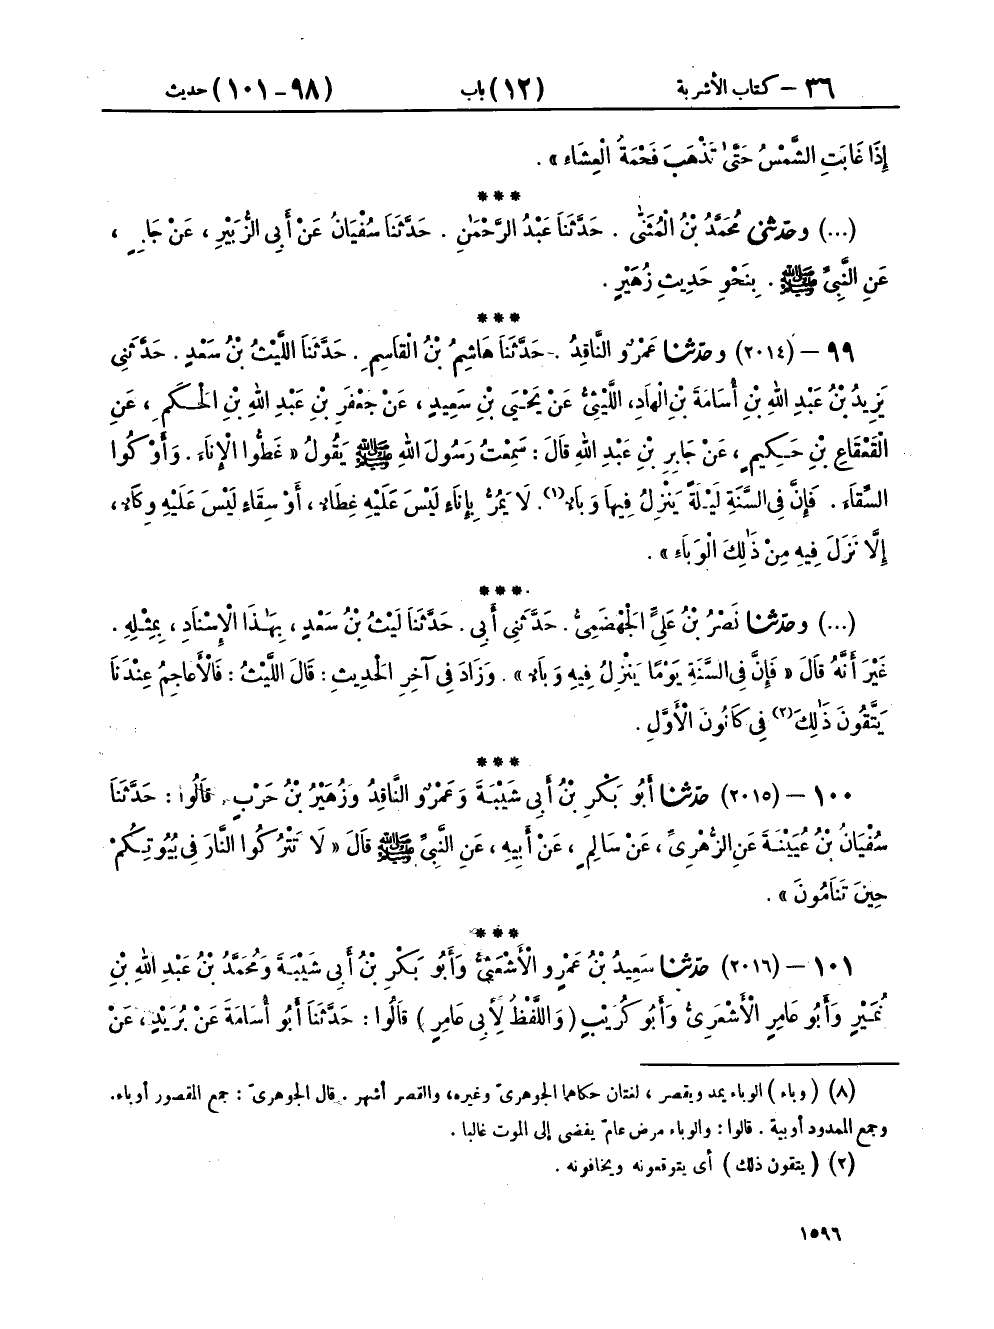 ٣٦ - كتاب الأشربة (١٢) باب (٩٨-١٠١) حديث
إِذَا غَابَتِ الشَّمْسُ حَتَّىٰ تَذْهَبَ فَحْمَةُ الْعِشَاءِ » .
***
(...) وحدّثنى مُحَمَّدُ بْنُ الْمُثَنَّىٰ . حَدَّثَنَا عَبْدُ الرَّحْمَٰنِ . حَدَّثَنَا سُفْيَانُ عَنْ أَبِى الزُّبَيْرِ ، عَنْ جَابِرٍ ،
عَنِ النَّبِىِّ ﷺ . بِنَحْوِ حَدِيثِ زُهَيْرٍ .
***
٩٩ - (٢٠١٤) وحدّثنا عَمْرٌو النَّاقِدُ . حَدَّثَنَا هَاشِمُ بْنُ الْقَاسِمِ . حَدَّثَنَا اللَّيْثُ بْنُ سَعْدٍ . حَدَّثَنِى
يَزِيدُ بْنُ عَبْدِ اللهِ بْنِ أُسَامَةَ بْنِ الْهَادِ، اللَّيْثِىُّ عَنْ يَحْيَى بْنِ سَعِيدٍ ، عَنْ جَعْفَرِ بْنِ عَبْدِ اللهِ بْنِ الْحَكَمِ ، عَنِ
الْقَعْقَاعِ بْنِ حَكِيمٍ ، عَنْ جَابِرِ بْنِ عَبْدِ اللهِ قَالَ : سَمِعْتُ رَسُولَ اللهِ ﷺ يَقُولُ « غَطُّوا الْإِنَاءَ . وَأَوْكُوا
السِّقَاءَ . فَإِنَّ فِى السَّنَةِ لَيْلَةً يَنْزِلُ فِيهَا وَبَاءٌ (١). لَا يَمُرُّ بِإِنَاءٍ لَيْسَ عَلَيْهِ غِطَاءٌ ، أَوْ سِقَاءٍ لَيْسَ عَلَيْهِ وِكَاءٌ ،
إِلَّا نَزَلَ فِيهِ مِنْ ذَٰلِكَ الْوَبَاءِ » .
***
(...) وحدّثنا نَصْرُ بْنُ عَلِىٍّ الْجَهْضَمِىُّ . حَدَّثَنِى أَبِى . حَدَّثَنَا لَيْثُ بْنُ سَعْدٍ ، بِهَٰذَا الْإِسْنَادِ ، بِمِثْلِهِ .
غَيْرَ أَنَّهُ قَالَ « فَإِنَّ فِى السَّنَةِ يَوْمًا يَنْزِلُ فِيهِ وَبَاءٌ » . وَزَادَ فِى آخِرِ الْحَدِيثِ : قَالَ اللَّيْثُ : فَالْأَعَاجِمُ عِنْدَنَا
يَتَّقُونَ ذَٰلِكَ (٢) فِى كَانُونَ الْأَوَّلِ .
***
١٠٠ - (٢٠١٥) حدّثنا أَبُو بَكْرِ بْنُ أَبِى شَيْبَةَ وَعَمْرٌو النَّاقِدُ وَزُهَيْرُ بْنُ حَرْبٍ . قَالُوا : حَدَّثَنَا
سُفْيَانُ بْنُ عُيَيْنَةَ عَنِ الزُّهْرِىِّ ، عَنْ سَالِمٍ ، عَنْ أَبِيهِ ، عَنِ النَّبِىِّ ﷺ قَالَ « لَا تَتْرُكُوا النَّارَ فِى بُيُوتِكُمْ
حِينَ تَنَامُونَ » .
***
١٠١ - (٢٠١٦) حدّثنا سَعِيدُ بْنُ عَمْرٍو الْأَشْعَثِىُّ وَأَبُو بَكْرِ بْنُ أَبِى شَيْبَةَ وَمُحَمَّدُ بْنُ عَبْدِ اللهِ بْنِ
نُمَيْرٍ وَأَبُو عَامِرٍ الْأَشْعَرِىُّ وَأَبُو كُرَيْبٍ ( وَاللَّفْظُ لِأَبِى عَامِرٍ ) قَالُوا : حَدَّثَنَا أَبُو أُسَامَةَ عَنْ بُرَيْدٍ ، عَنْ
(٨) ( وباء ) الوباء يمد ويقصر ، لغتان حكاهما الجوهرىّ وغيره، والقصر أشهر . قال الجوهرىّ : جمع المقصور أوباء.
وجمع الممدود أوبية . قالوا : والوباء مرض عامّ يفضى إلى الموت غالبا .
(٢) ( يتقون ذلك ) أى يتوقعونه ويخافونه .
١٥٩٦